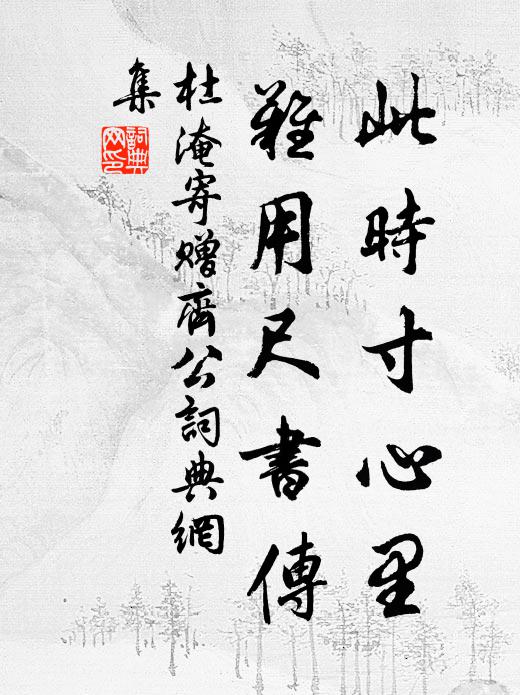 此時寸心里
難用尺書傳
杜淹寄贈齊公詞典網
集
詞典網印